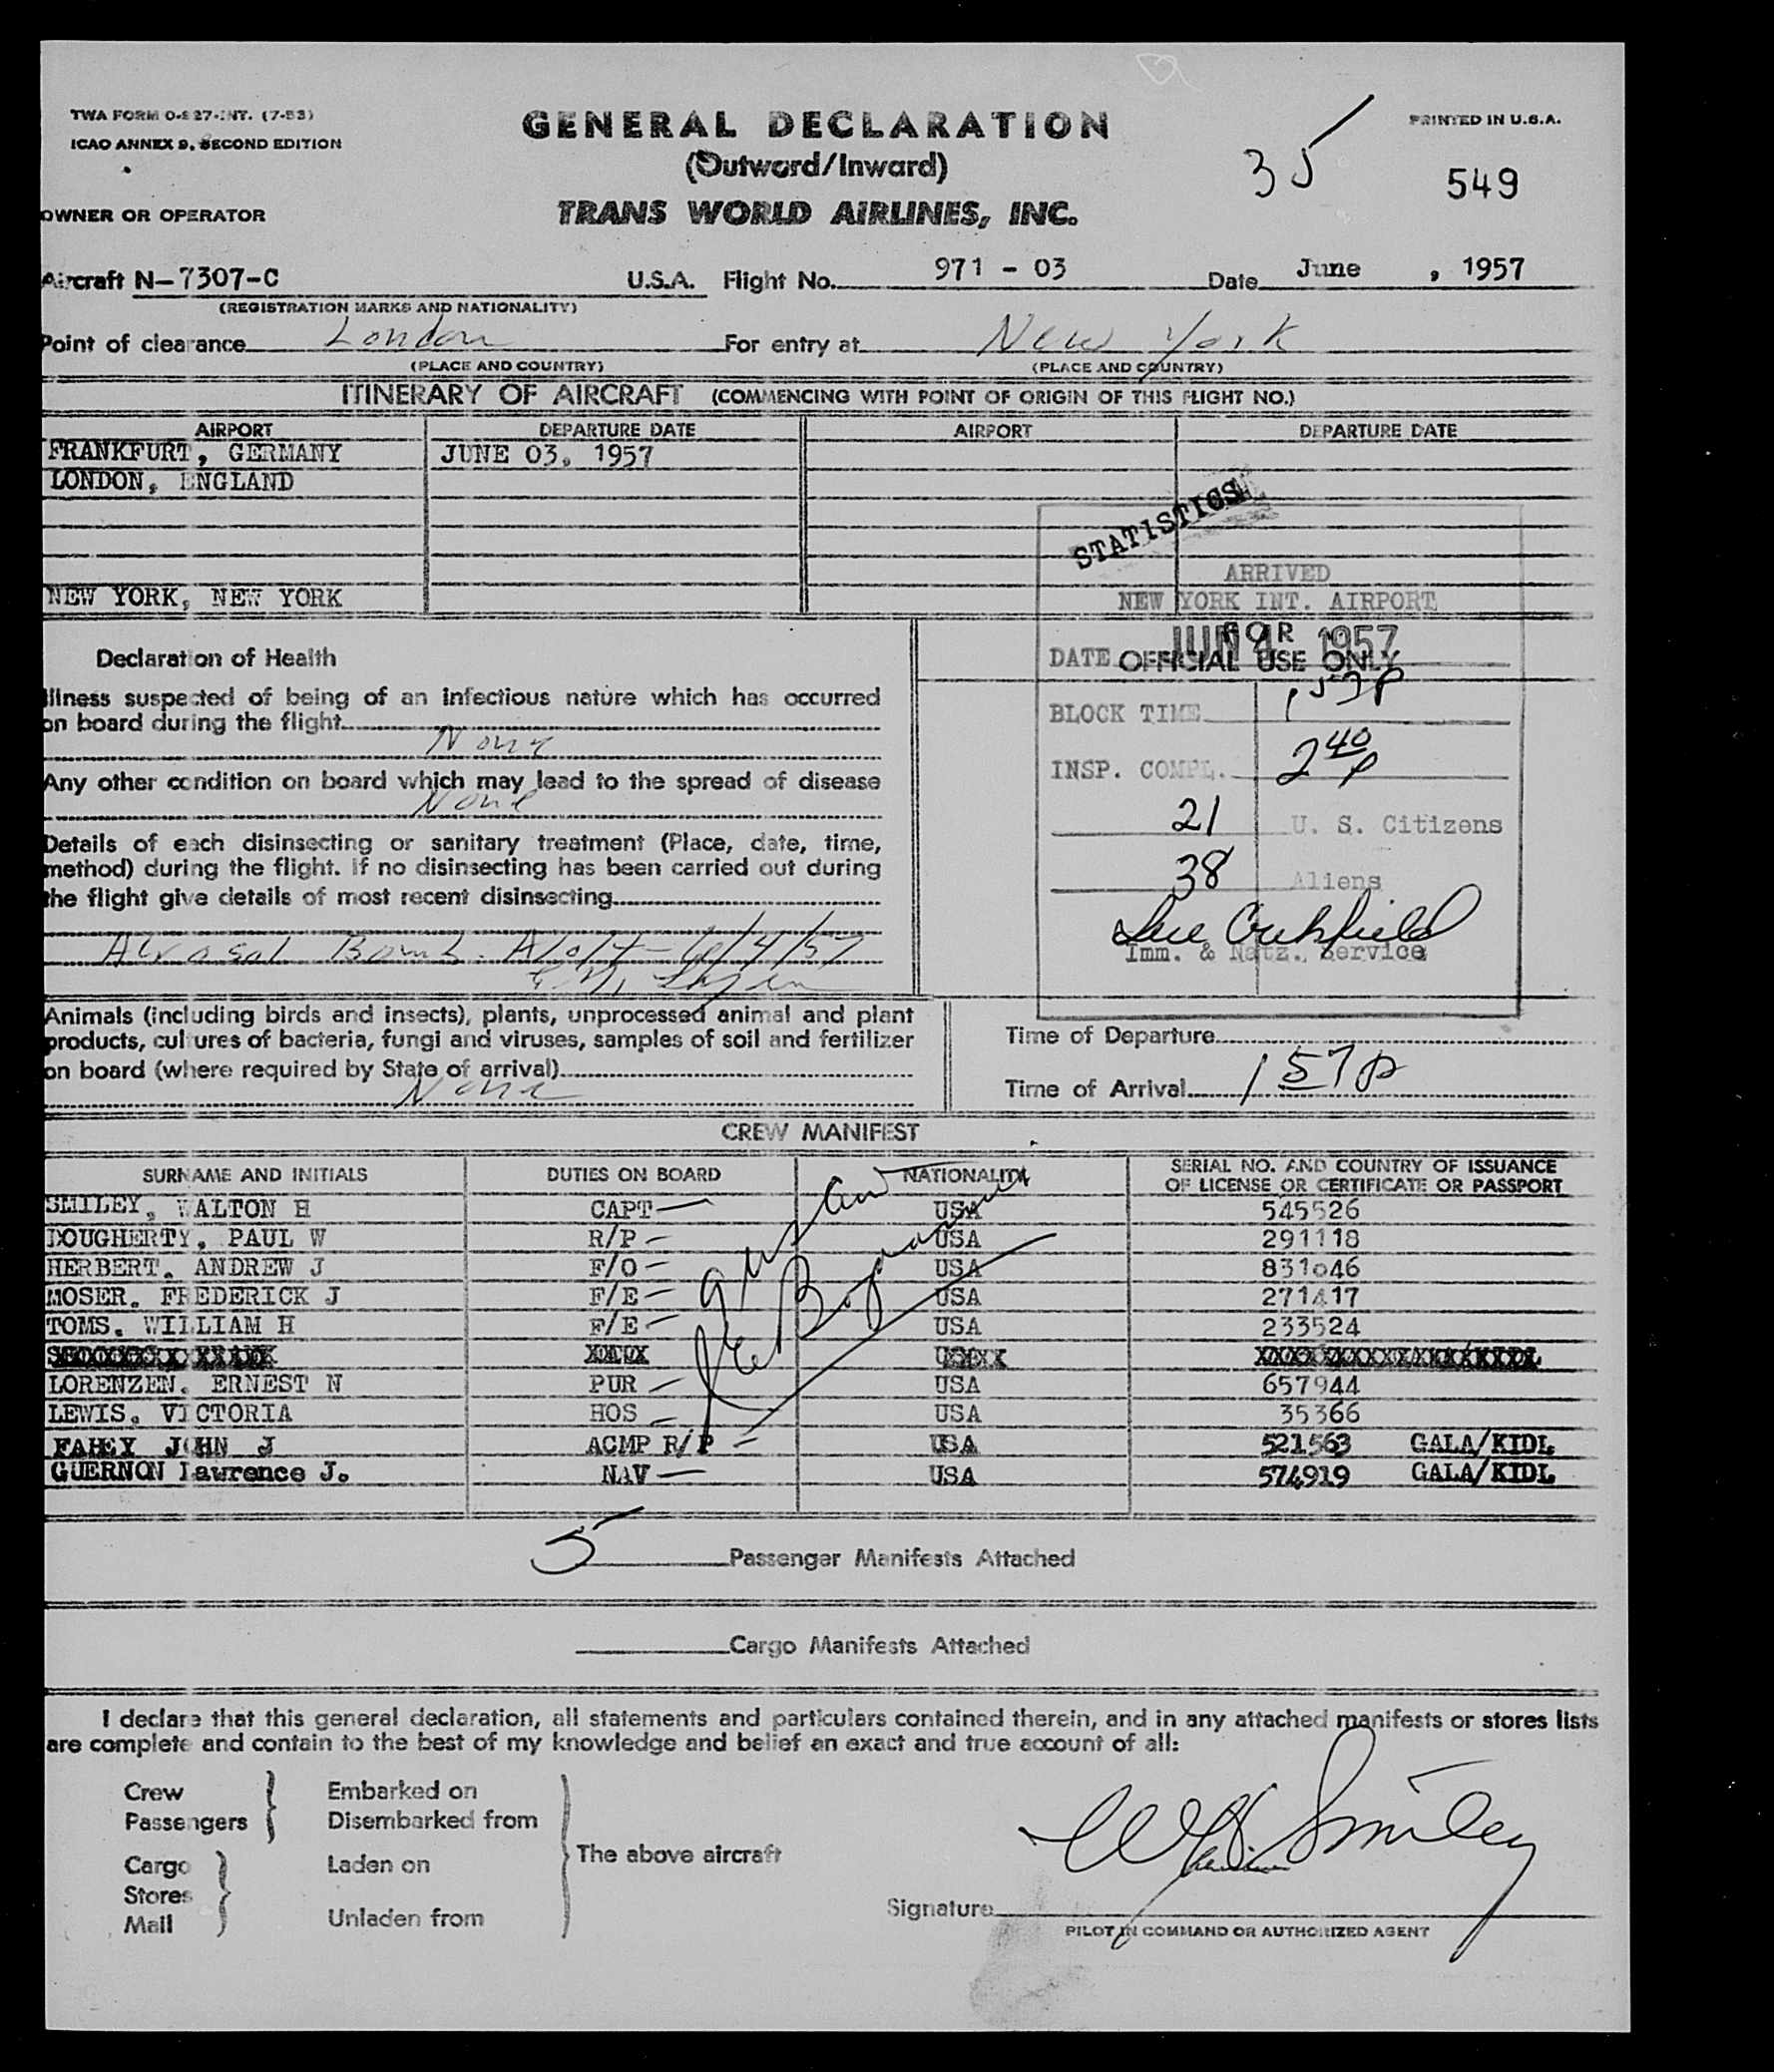 TWA FORM O-827-INT. (7-53)
ICAO ANNEX 9, SECOND EDITION
GENERAL DECLARATION
(Outward/Inward)
PRINTED IN U.S.A.
35
549
OWNER OR OPERATOR
TRANS WORLD AIRLINES, INC.
Aircraft N-7307-C U.S.A. Flight No. 971 - 03 Date June , 1957
(REGISTRATION MARKS AND NATIONALITY)
Point of clearance London For entry at New York
(PLACE AND COUNTRY) (PLACE AND COUNTRY)
ITINERARY OF AIRCRAFT (COMMENCING WITH POINT OF ORIGIN OF THIS FLIGHT NO.)
AIRPORT DEPARTURE DATE AIRPORT DEPARTURE DATE
FRANKFURT, GERMANY JUNE 03, 1957
LONDON, ENGLAND
NEW YORK, NEW YORK
STATISTICS
ARRIVED
NEW YORK INT. AIRPORT
FOR
OFFICIAL USE ONLY
DATE JUN 4 1957
BLOCK TIME 1 57 P
INSP. COMPL. 2 40 P
21 U. S. Citizens
38 Aliens
Imm. & Natz. Service
Declaration of Health
Illness suspected of being of an infectious nature which has occurred
on board during the flight
None
Any other condition on board which may lead to the spread of disease
None
Details of each disinsecting or sanitary treatment (Place, date, time,
method) during the flight. If no disinsecting has been carried out during
the flight give details of most recent disinsecting
Aerosol Bomb. Aloft - 6/4/57
Animals (including birds and insects), plants, unprocessed animal and plant
products, cultures of bacteria, fungi and viruses, samples of soil and fertilizer
on board (where required by State of arrival)
None
Time of Departure
Time of Arrival 1 57 p
CREW MANIFEST
SURNAME AND INITIALS DUTIES ON BOARD NATIONALITY SERIAL NO. AND COUNTRY OF ISSUANCE
OF LICENSE OR CERTIFICATE OR PASSPORT
SMILEY, WALTON H CAPT USA 545526
DOUGHERTY, PAUL W R/P USA 291118
HERBERT, ANDREW J F/O USA 831046
MOSER, FREDERICK J F/E USA 271417
TOMS, WILLIAM H F/E USA 233524
LORENZEN, ERNEST N PUR USA 657944
LEWIS, VICTORIA HOS USA 35366
FAHEY JOHN J ACMP R/P USA 521563 GALA/KIDL
GUERNON Lawrence J. NAV USA 574919 GALA/KIDL
5 Passenger Manifests Attached
Cargo Manifests Attached
I declare that this general declaration, all statements and particulars contained therein, and in any attached manifests or stores lists
are complete and contain to the best of my knowledge and belief an exact and true account of all:
Crew Embarked on
Passengers Disembarked from
The above aircraft
Cargo Laden on
Stores
Mail Unladen from
Signature W H Smiley
PILOT IN COMMAND OR AUTHORIZED AGENT